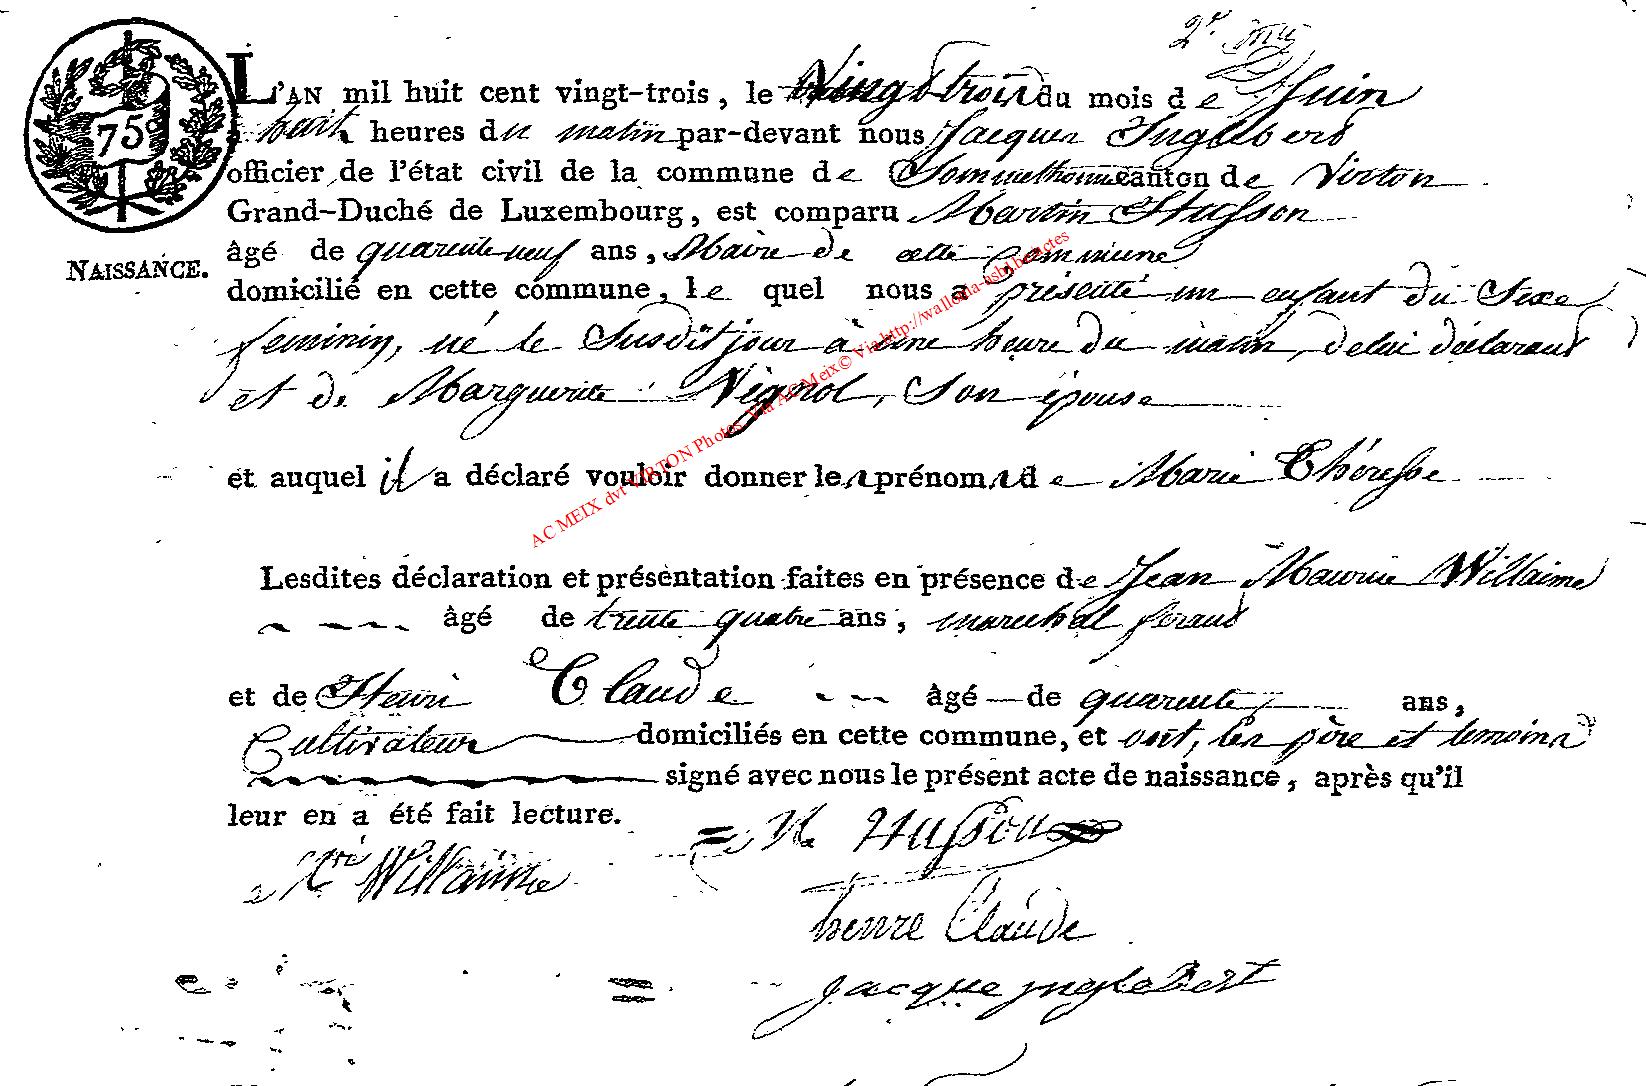 2e
75c
L'AN mil huit cent vingt-trois, le Vingt trois du mois de Juin
à huit heures du matin par-devant nous Jacques Inglebert
officier de l'état civil de la commune de Sommethonne canton de Virton
Grand-Duché de Luxembourg, est comparu Martin Husson
âgé de quarente neuf ans, Maire de cette Commune
NAISSANCE.
domicilié en cette commune, lequel nous a présenté un enfant du Sexe
feminin, né le Susdit jour à une heure du matin, delui déclarant
et de Marguerite Nignol, Son épouse
et auquel il a déclaré vouloir donner les prénoms de Marie Thérèsse
AC MEIX dvt VIRTON Photos Via AC Meix© Via http://wallonia-asbl.be/actes
Lesdites déclaration et présentation faites en présence de Jean Maurice Willaime
âgé de trente quatre ans, marechal ferant
et de Henri Claude âgé de quarente ans,
Cultivateur domiciliés en cette commune, et ont, les père et temoins
signé avec nous le présent acte de naissance, après qu'il
leur en a été fait lecture.
M Husson
Willaime
henre Claude
jacque jnglebert